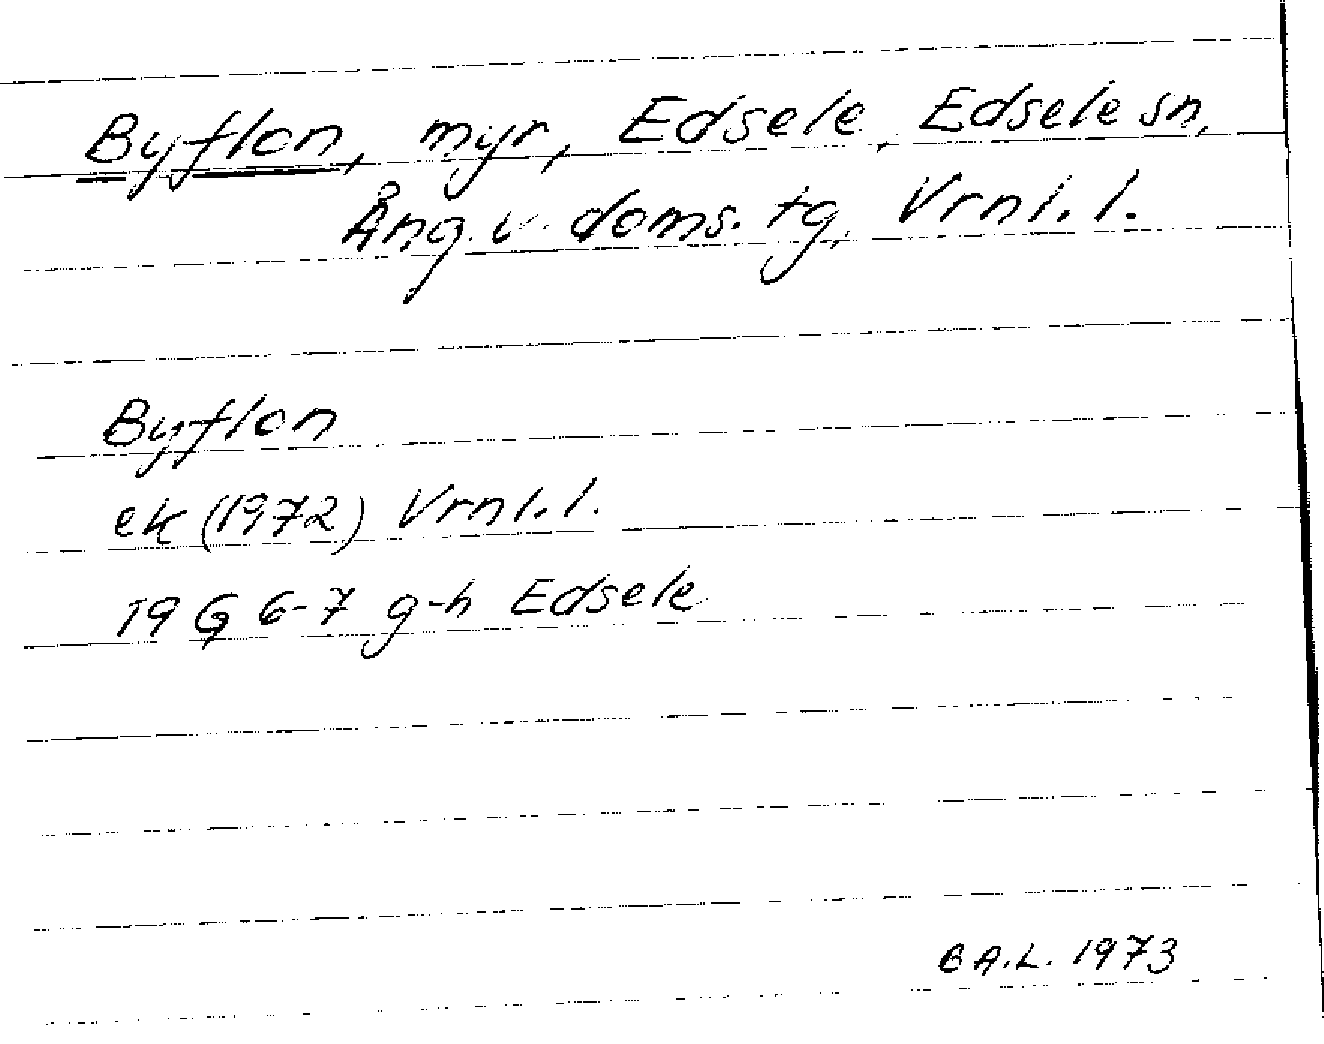 Byflon, myr, Edsele, Edsele sn,
Ång. v. doms. tg, Vrnl. l.
Byflon
ek (1972) Vrnl. l.
19 G 6-7 g-h Edsele
B A.L. 1973